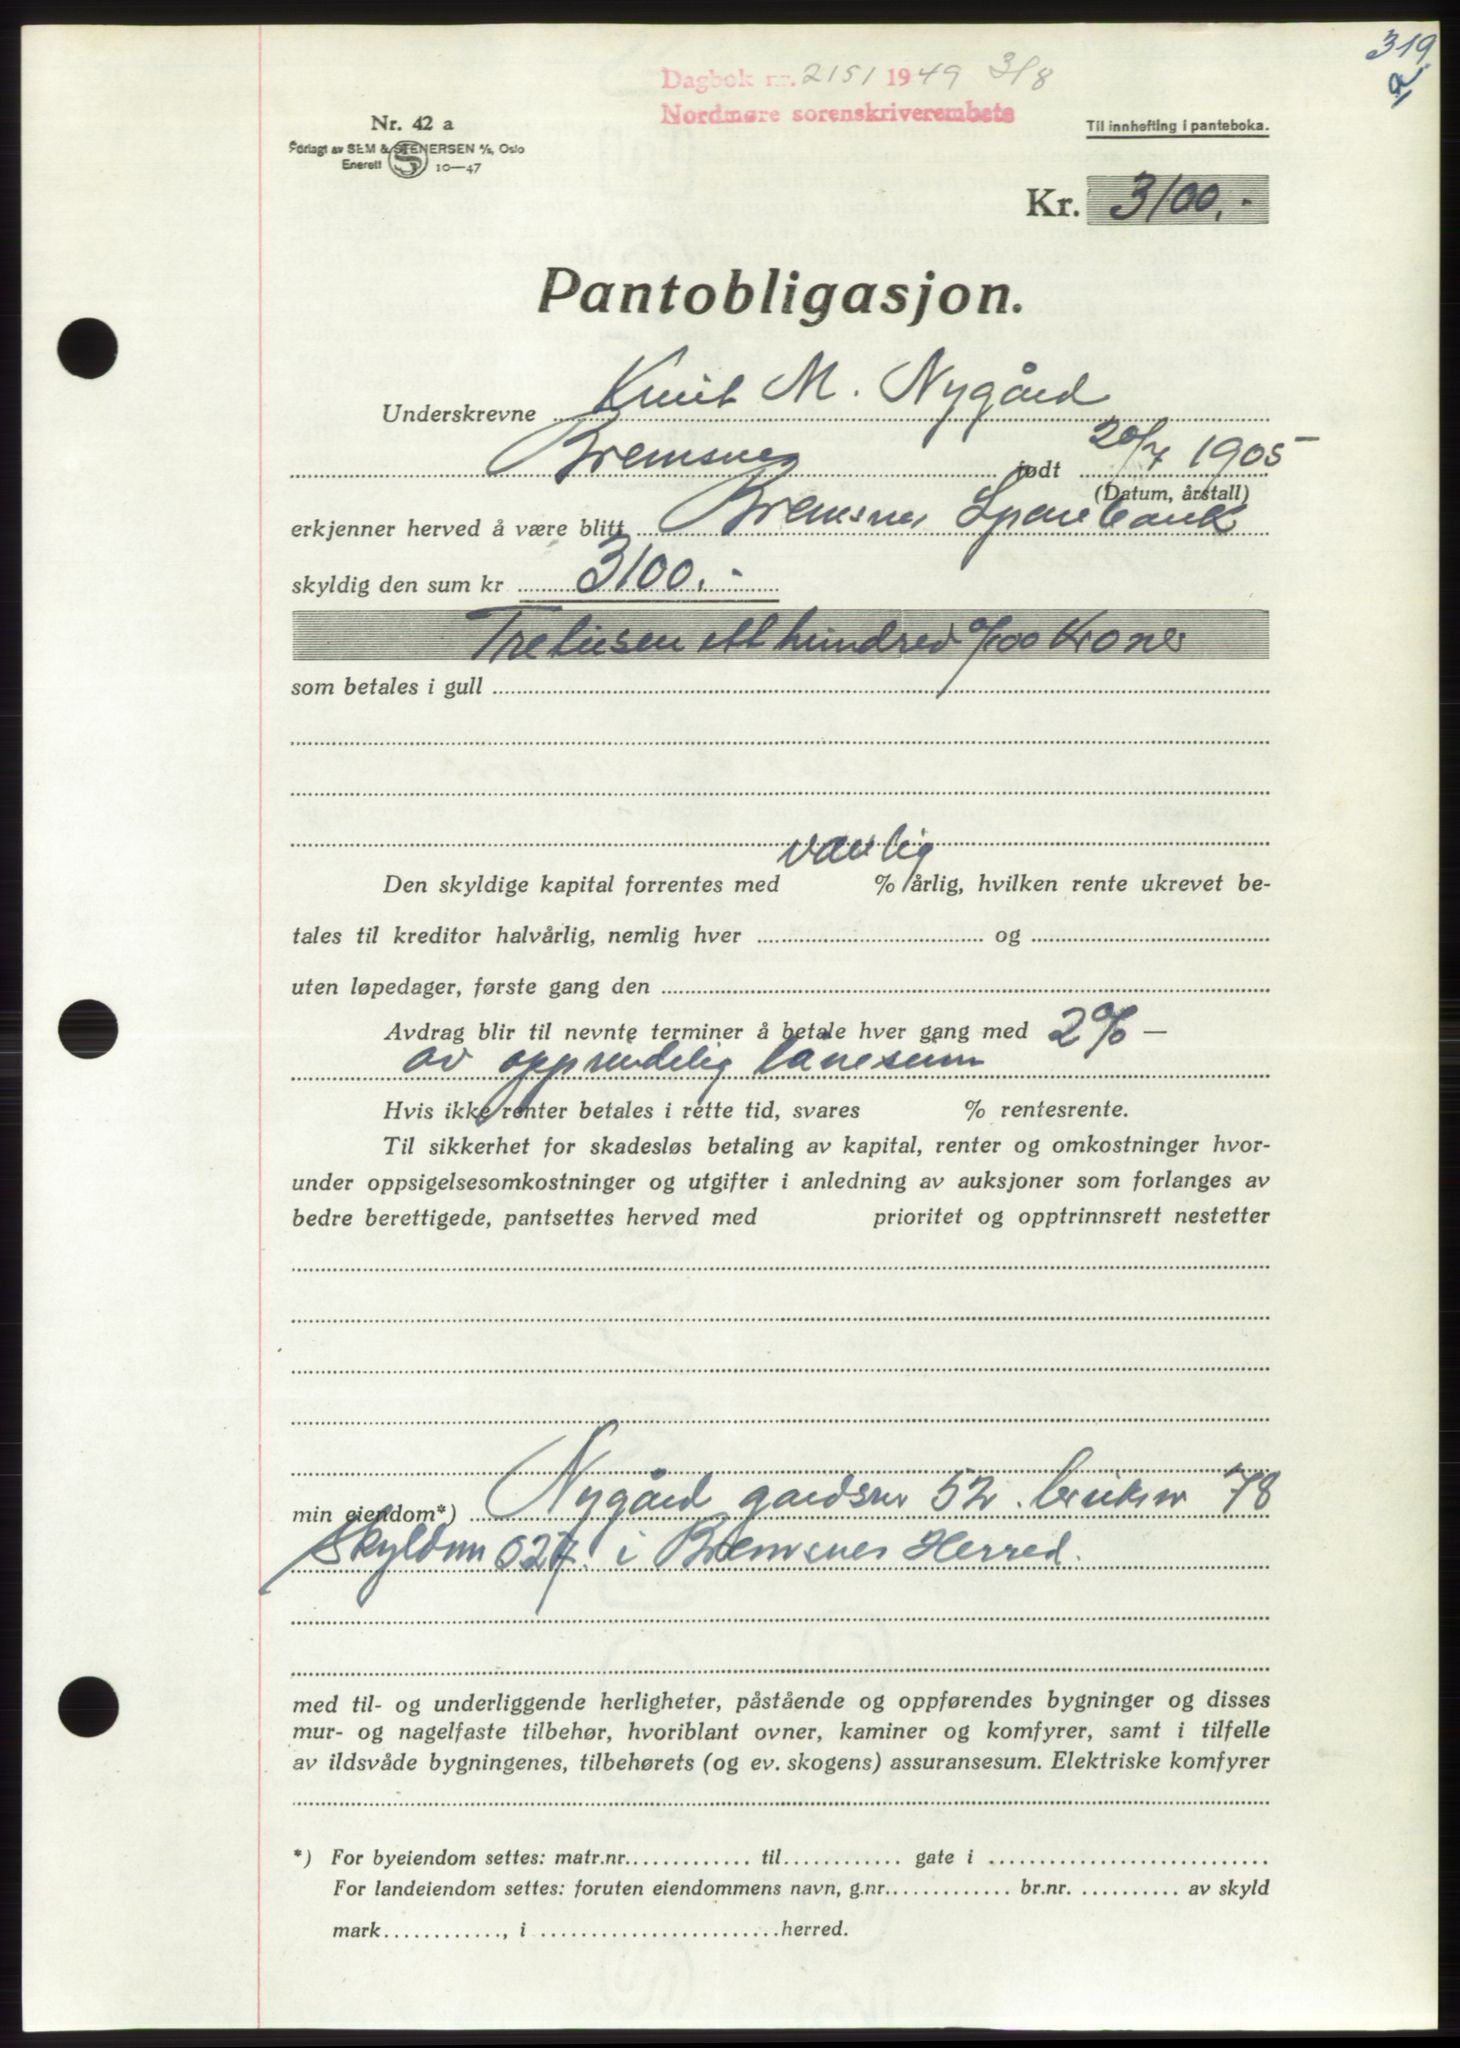 319
Dagbok nr. 2151 1949 3/8
Nordmøre sorenskriverembete
Nr. 42 a
Forlagt av SEM & STENERSEN A/S, Oslo
Enerett S 10—47
Til innhefting i panteboka.
Kr. 3100.-
Pantobligasjon.
Underskrevne Knut M. Nygård
Bremsnes født 20/7 1905
(Datum, årstall)
erkjenner herved å være blitt Bremsnes Sparebank
skyldig den sum kr 3100.-
Tretusen etthundred 0/00 Kroner
som betales i gull
Den skyldige kapital forrentes med vanlig % årlig, hvilken rente ukrevet be-
tales til kreditor halvårlig, nemlig hver og
uten løpedager, første gang den
Avdrag blir til nevnte terminer å betale hver gang med 2% —
av opprindelig lånesum
Hvis ikke renter betales i rette tid, svares % rentesrente.
Til sikkerhet for skadesløs betaling av kapital, renter og omkostninger hvor-
under oppsigelsesomkostninger og utgifter i anledning av auksjoner som forlanges av
bedre berettigede, pantsettes herved med prioritet og opptrinnsrett nestetter
min eiendom*) Nygård gardsnr 52. bruksnr 78
Skyldmr 027. i Bremsnes Herred.
med til- og underliggende herligheter, påstående og oppførendes bygninger og disses
mur- og nagelfaste tilbehør, hvoriblant ovner, kaminer og komfyrer, samt i tilfelle
av ildsvåde bygningenes, tilbehørets (og ev. skogens) assuransesum. Elektriske komfyrer
*) For byeiendom settes: matr.nr. til gate i
For landeiendom settes: foruten eiendommens navn, g.nr. br.nr. av skyld
mark , i herred.